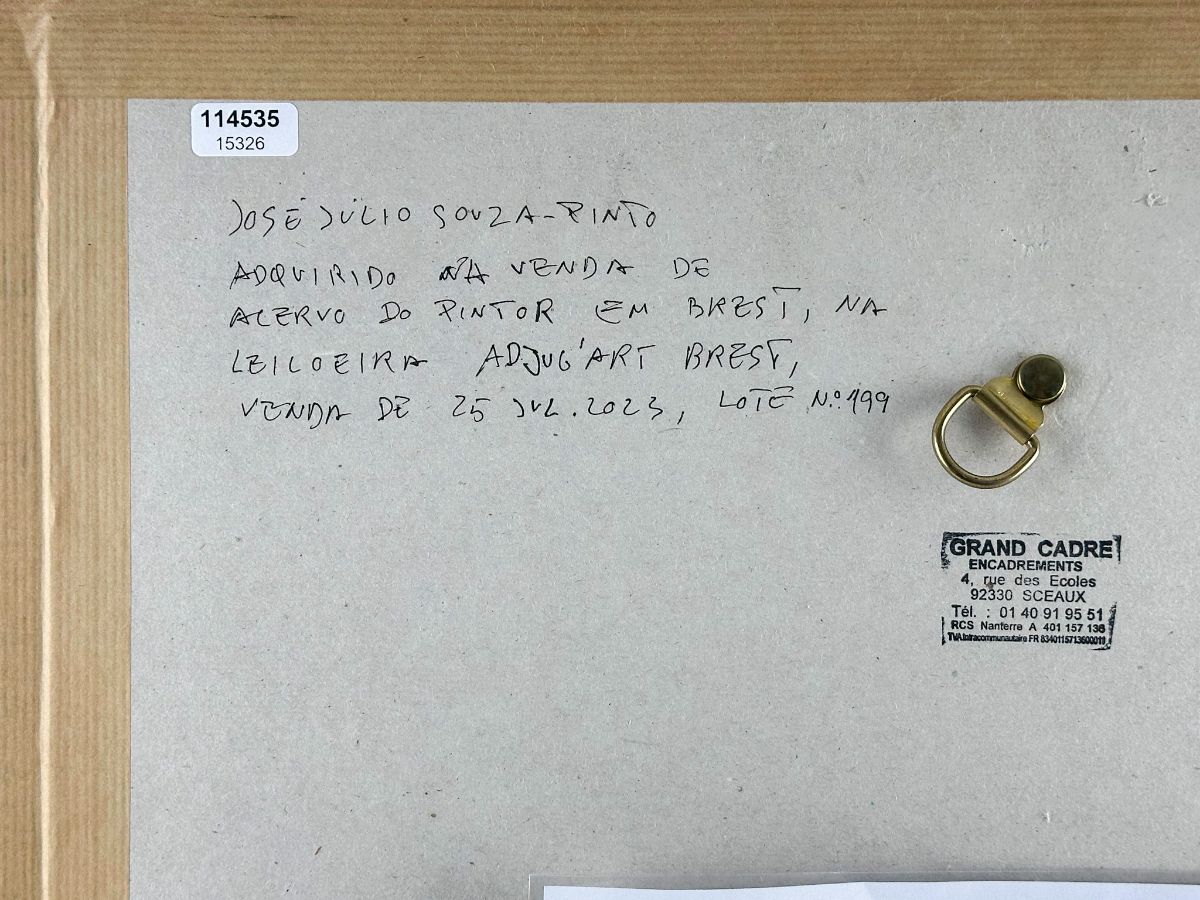 114535
15326
JOSÉ JÚLIO SOUZA-PINTO
ADQUIRIDO NA VENDA DE
ACERVO DO PINTOR EM BREST, NA
LEILOEIRA ADJUG'ART BREST,
VENDA DE 25 JUL. 2023, LOTE N.º 199
GRAND CADRE
ENCADREMENTS
4, rue des Ecoles
92330 SCEAUX
Tél. : 01 40 91 95 51
RCS Nanterre A 401 157 136
TVA Intracommunautaire FR